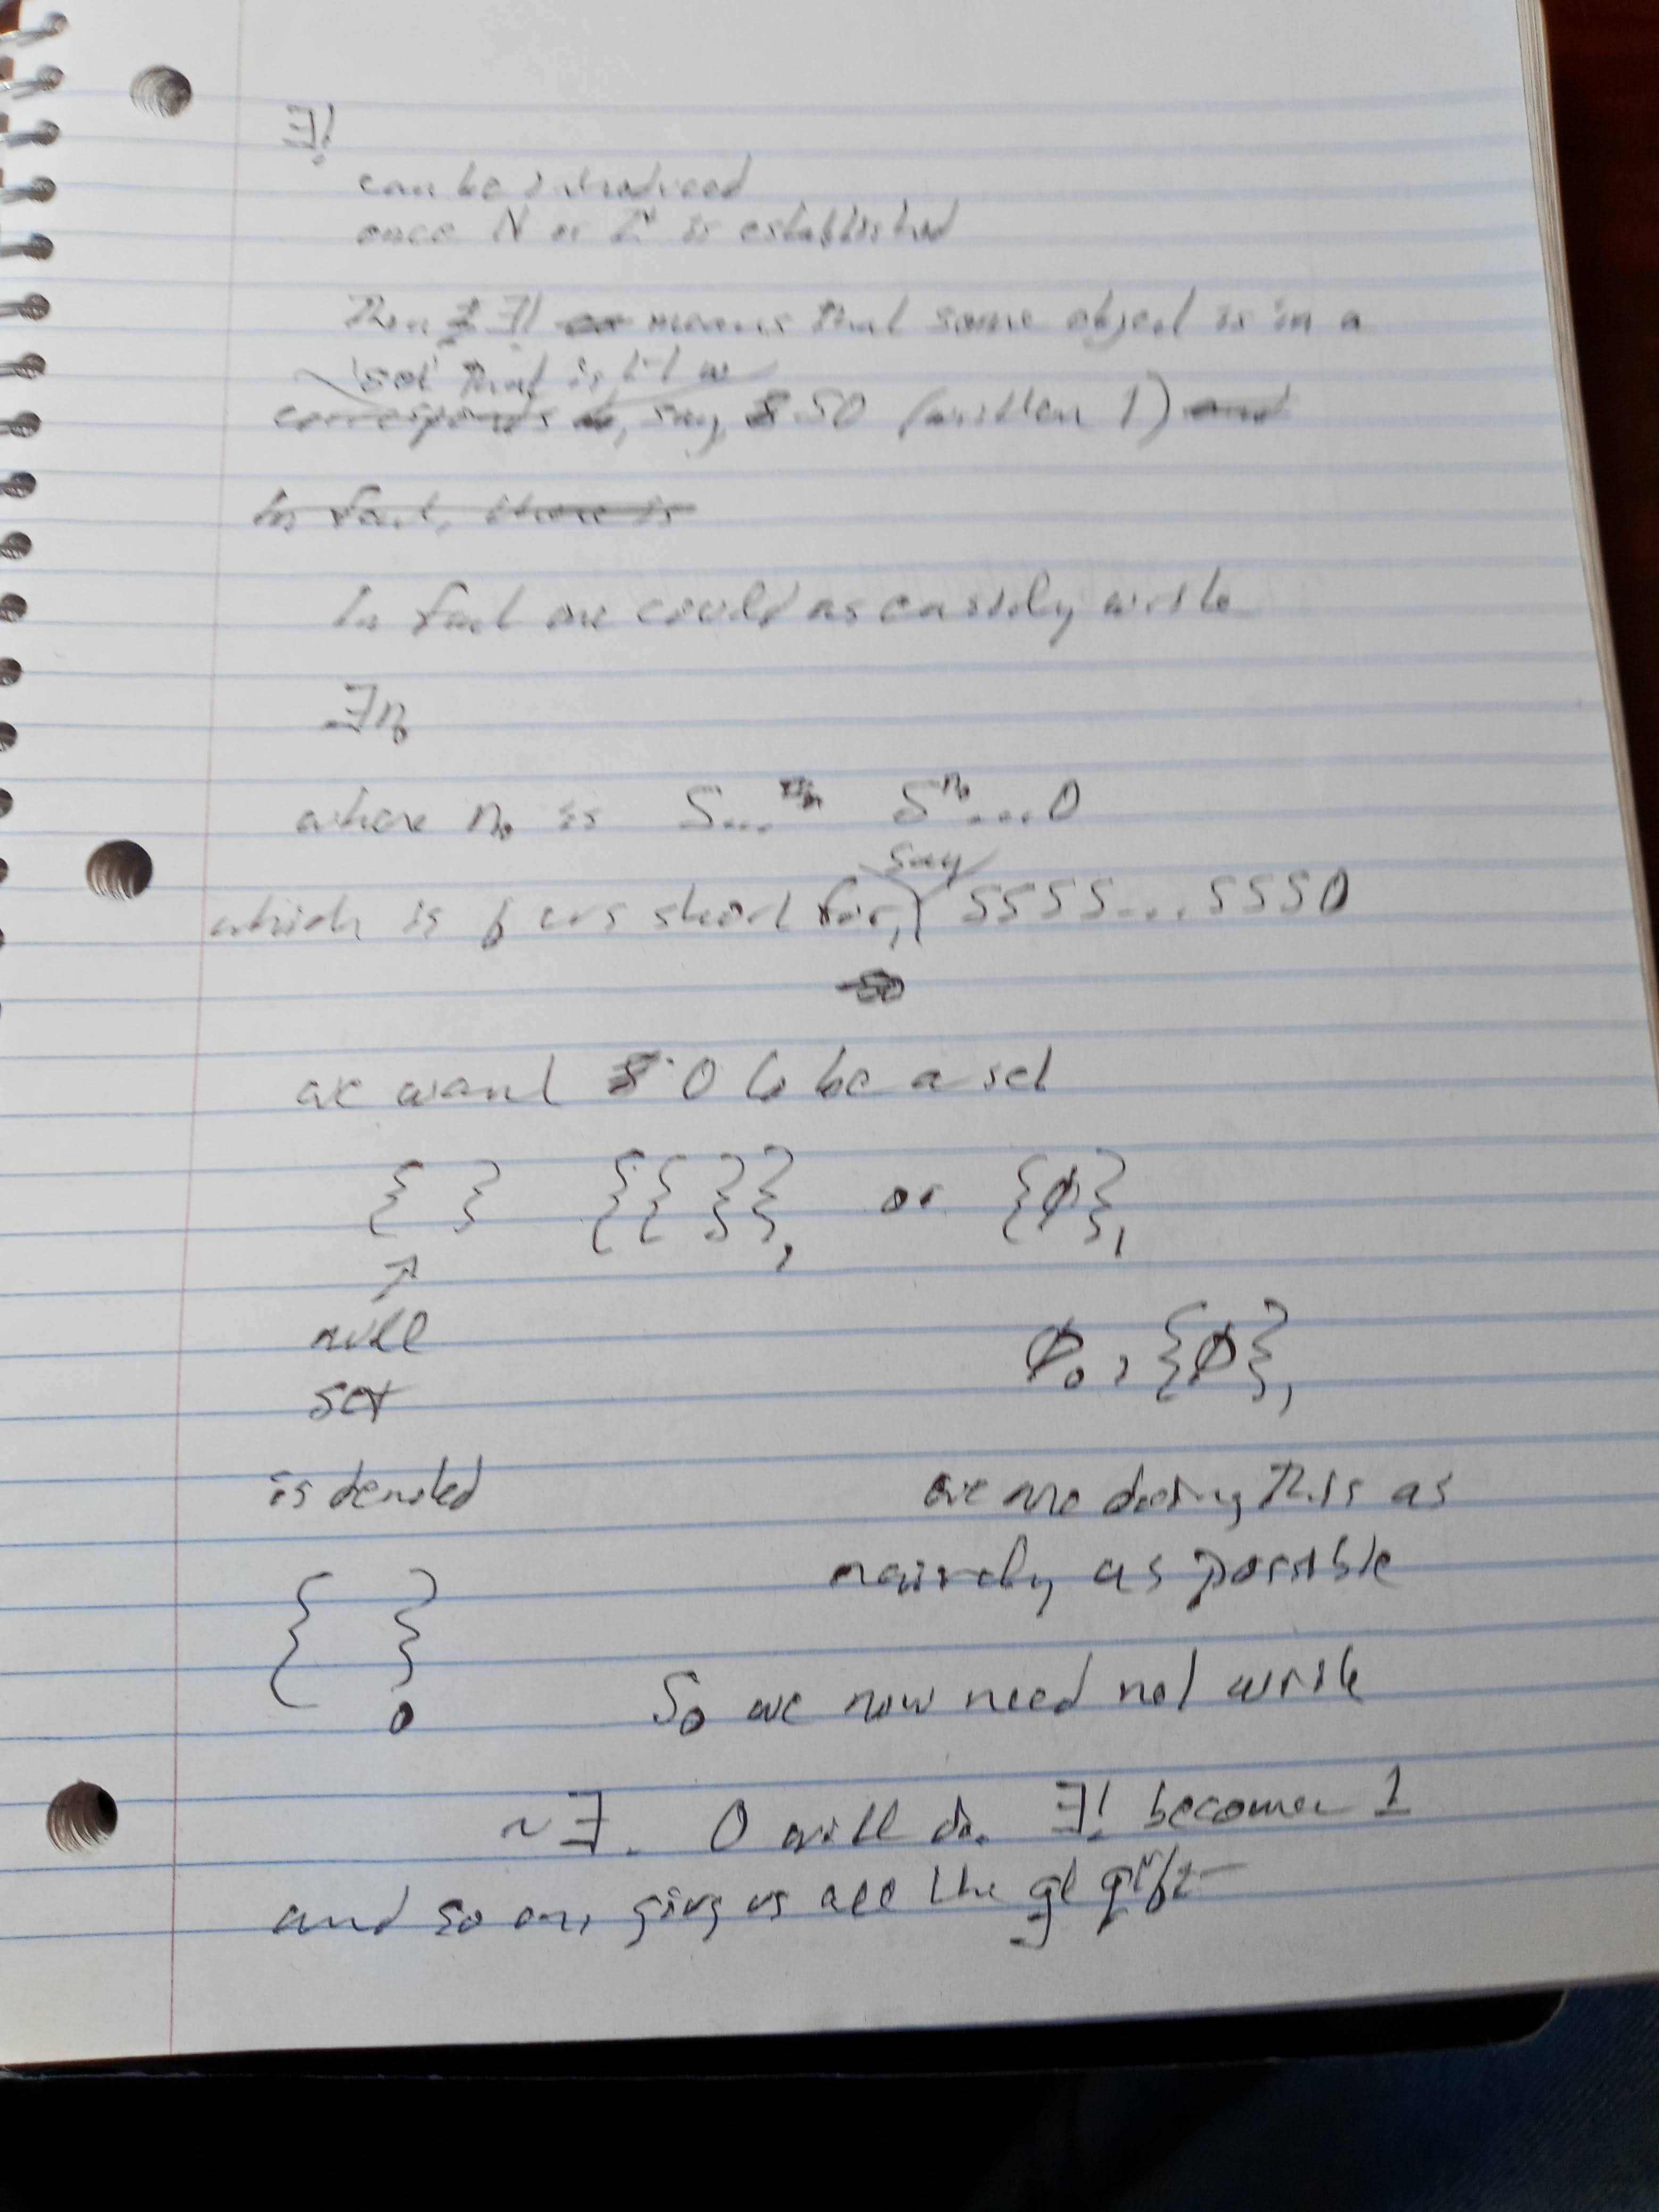 ∃!
can be introduced
once N or Z⁺ is established
Then ∃! means that some object is in a
set that is 1-1 w
corresponds to, say, S0 (written 1) and
In fact, there is
In fact one could as easily write
∃n₀
where n₀ is S... Sⁿ⁰...0
which is short for, say SSSS...SSS0
we want 0 to be a set
{ } {{ }}₁ or {∅}₁
↗
null
set
∅₀, {∅}₁
is denoted
{ }₀
we are doing this as
naively as possible
So we now need not write
~∃. 0 will do. ∃! becomes 1
and so on, giving us all the